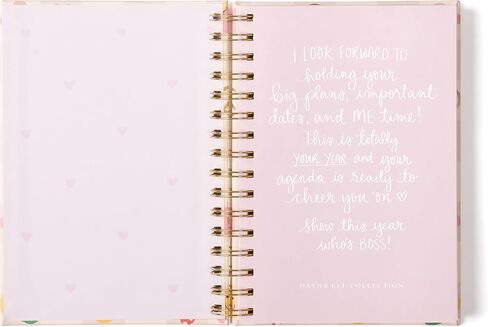 I LOOK FORWARD TO
holding your
big plans, important
dates, and ME time!
This is totally
YOUR YEAR and your
agenda is ready to
cheer you on ♡
Show this year
who's BOSS!
COLLECTION